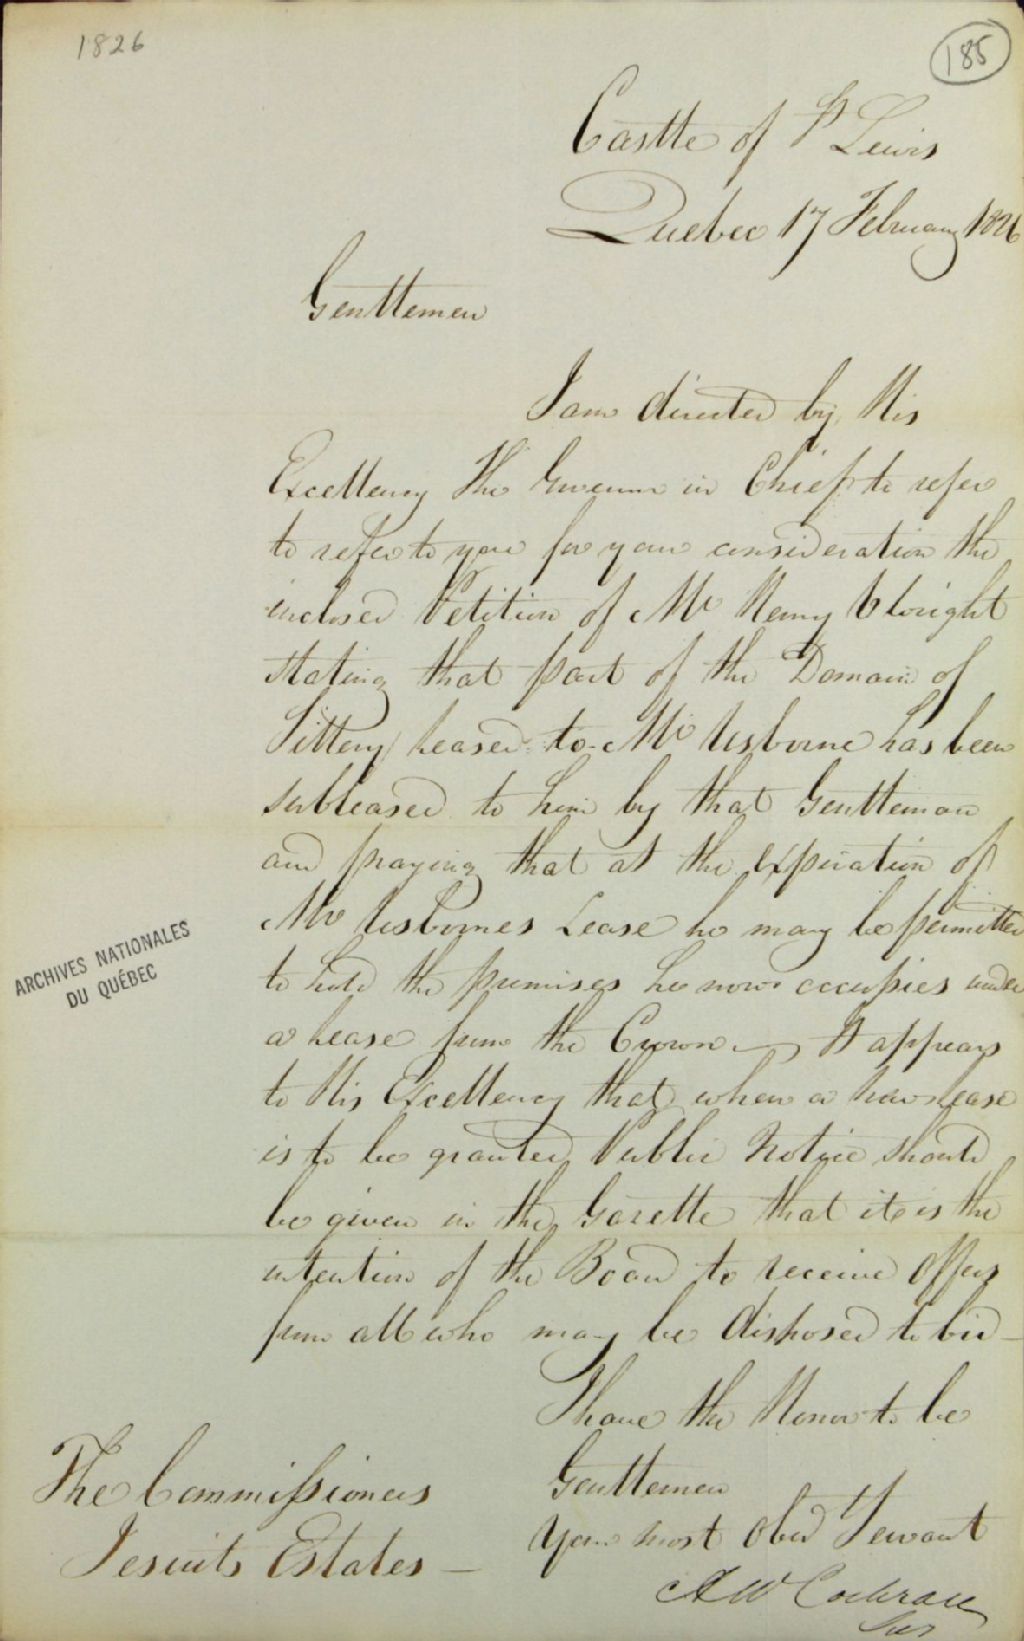 1826
185
Castle of St Lewis
Quebec 17 February 1826
Gentlemen
I am directed by His
Excellency The Governor in Chief to refer
to refer to you for your consideration the
inclosed Petition of Mr Henry Wright
stating that part of the Domain of
Sillery leased to Mr Usborne has been
subleased to him by that Gentleman
and praying that at the expiration of
Mr Usbornes Lease he may be permitted
to hold the premises he now occupies under
a lease from the Crown — It appears
to His Excellency that when a new lease
is to be granted Public Notice should
be given in the Gazette that it is the
intention of the Board to receive Offers
from all who may be disposed to bid —
I have the Honor to be
Gentlemen
Your most Obed Servant
A W Cochran
Sec
The Commissioners
Jesuits Estates —
ARCHIVES NATIONALES
DU QUÉBEC